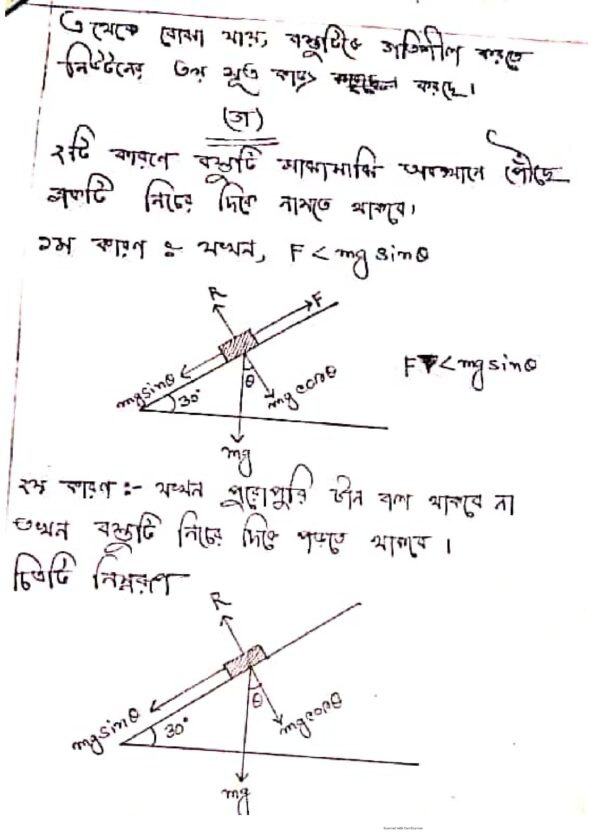 এ থেকে বোঝা যায়, বস্তুটিকে গতিশীল করতে
নিউটনের ৩য় সূত্র কাজ করছে।
২টি কারণে বস্তুটি মাঝামাঝি অবস্থানে পৌঁছে
নিচের দিকে নামতে থাকবে।
১ম কারণ :- যখন, F < mg sinθ
R
F
mg sinθ
30°
θ
mg cosθ
F < mg sinθ
mg
২য় কারণ :- যখন পুরোপুরি টান বল থাকবে না
তখন বস্তুটি নিচের দিকে পড়তে থাকবে।
চিত্রটি নিম্নরূপ
R
mg sinθ
30°
θ
mg cosθ
mg